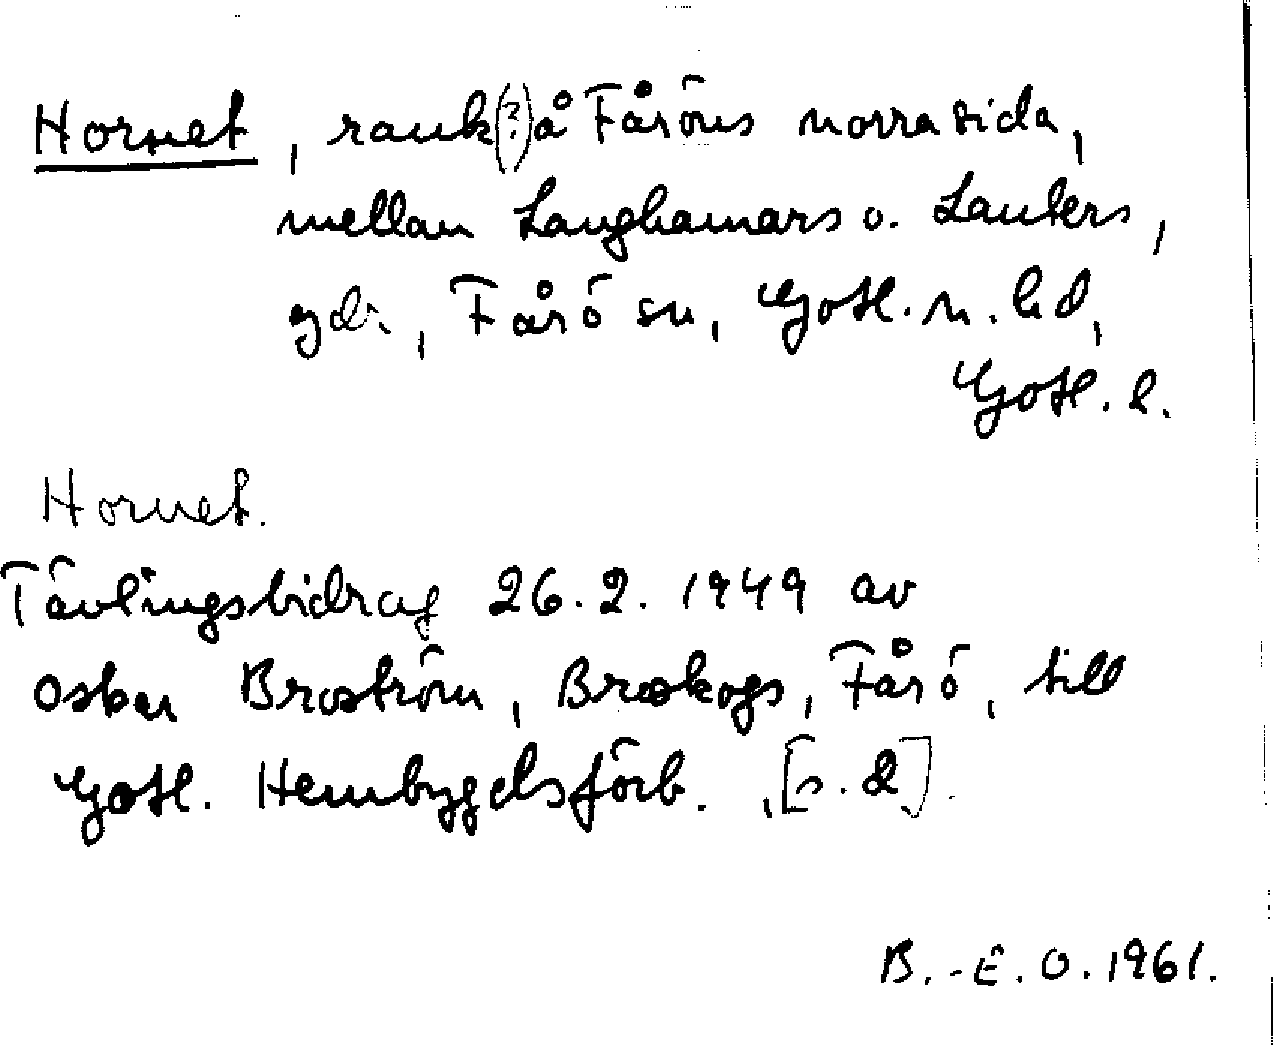 Hornet, rauk(?) å Fåröns norra sida,
mellan Langhamars o. Lauters,
gdr, Fårö sn, Gotl. n. hd,
Gotl. l.
Hornet.
Tävlingsbidrag 26.2.1949 av
Oskar Broström, Broskogs, Fårö, till
Gotl. Hembygdsförb. [s. 2].
B.-E. O. 1961.